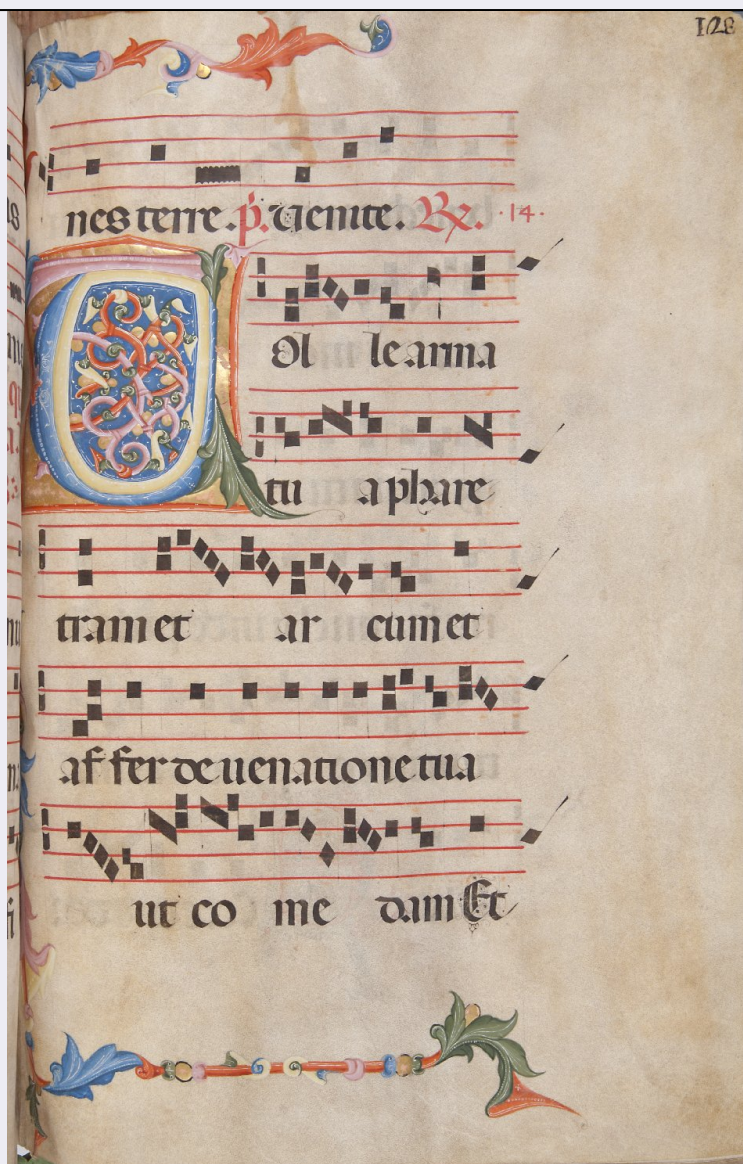 128
nes terre. p̄. Venite. Rx. ·14·
Tol le arma
tu a phare
tram et ar cum et
af fer de uenatione tua
ut co me dam Et